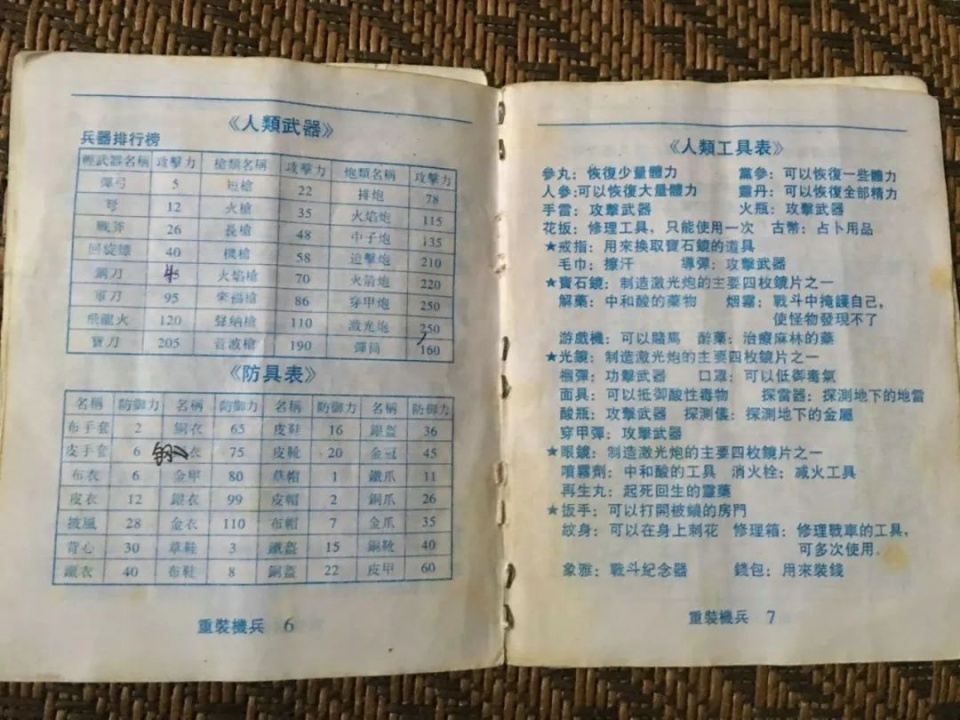 《人類武器》
兵器排行榜
輕武器名稱 攻擊力 槍類名稱 攻擊力 炮類名稱 攻擊力
彈弓 5 短槍 22 排炮 78
弩 12 火槍 35 火焰炮 115
戰斧 26 長槍 48 中子炮 135
回旋鏢 40 機槍 58 迫擊炮 210
鋼刀 45 火焰槍 70 火箭炮 220
軍刀 95 來福槍 86 穿甲炮 250
飛龍火 120 聲納槍 110 激光炮 250
寶刀 205 音波槍 190 彈筒 160
《防具表》
名稱 防御力 名稱 防御力 名稱 防御力 名稱 防御力
布手套 2 銅衣 65 皮鞋 16 銀盔 36
皮手套 6 鋼衣 75 皮靴 20 金冠 45
布衣 6 金甲 80 草帽 1 鐵爪 11
皮衣 12 銀衣 99 皮帽 2 銅爪 26
披風 28 金衣 110 布帽 7 金爪 35
背心 30 草鞋 3 鐵盔 15 鋼靴 40
鐵衣 40 布鞋 8 銅盔 22 皮甲 60
重裝機兵 6
《人類工具表》
參丸：恢復少量體力 黨參：可以恢復一些體力
人參：可以恢復大量體力 靈丹：可以恢復全部精力
手雷：攻擊武器 火瓶：攻擊武器
花扳：修理工具，只能使用一次 古幣：占卜用品
★戒指：用來換取寶石鏡的道具
毛巾：擦汗 導彈：攻擊武器
★寶石鏡：制造激光炮的主要四枚鏡片之一
解藥：中和酸的藥物 烟霧：戰斗中掩護自己，
使怪物發現不了
游戲機：可以賭馬 醉藥：治療麻林的藥
★光鏡：制造激光炮的主要四枚鏡片之一
榴彈：功擊武器 口罩：可以低御毒氣
面具：可以抵御酸性毒物 探雷器：探測地下的地雷
酸瓶：攻擊武器 探測儀：探測地下的金屬
穿甲彈：攻擊武器
★眼鏡：制造激光炮的主要四枚鏡片之一
噴霧劑：中和酸的工具 消火栓：减火工具
再生丸：起死回生的靈藥
★扳手：可以打開被鎖的房門
紋身：可以在身上刺花 修理箱：修理戰車的工具，
可多次使用。
象雅：戰斗紀念器 錢包：用來裝錢
重裝機兵 7